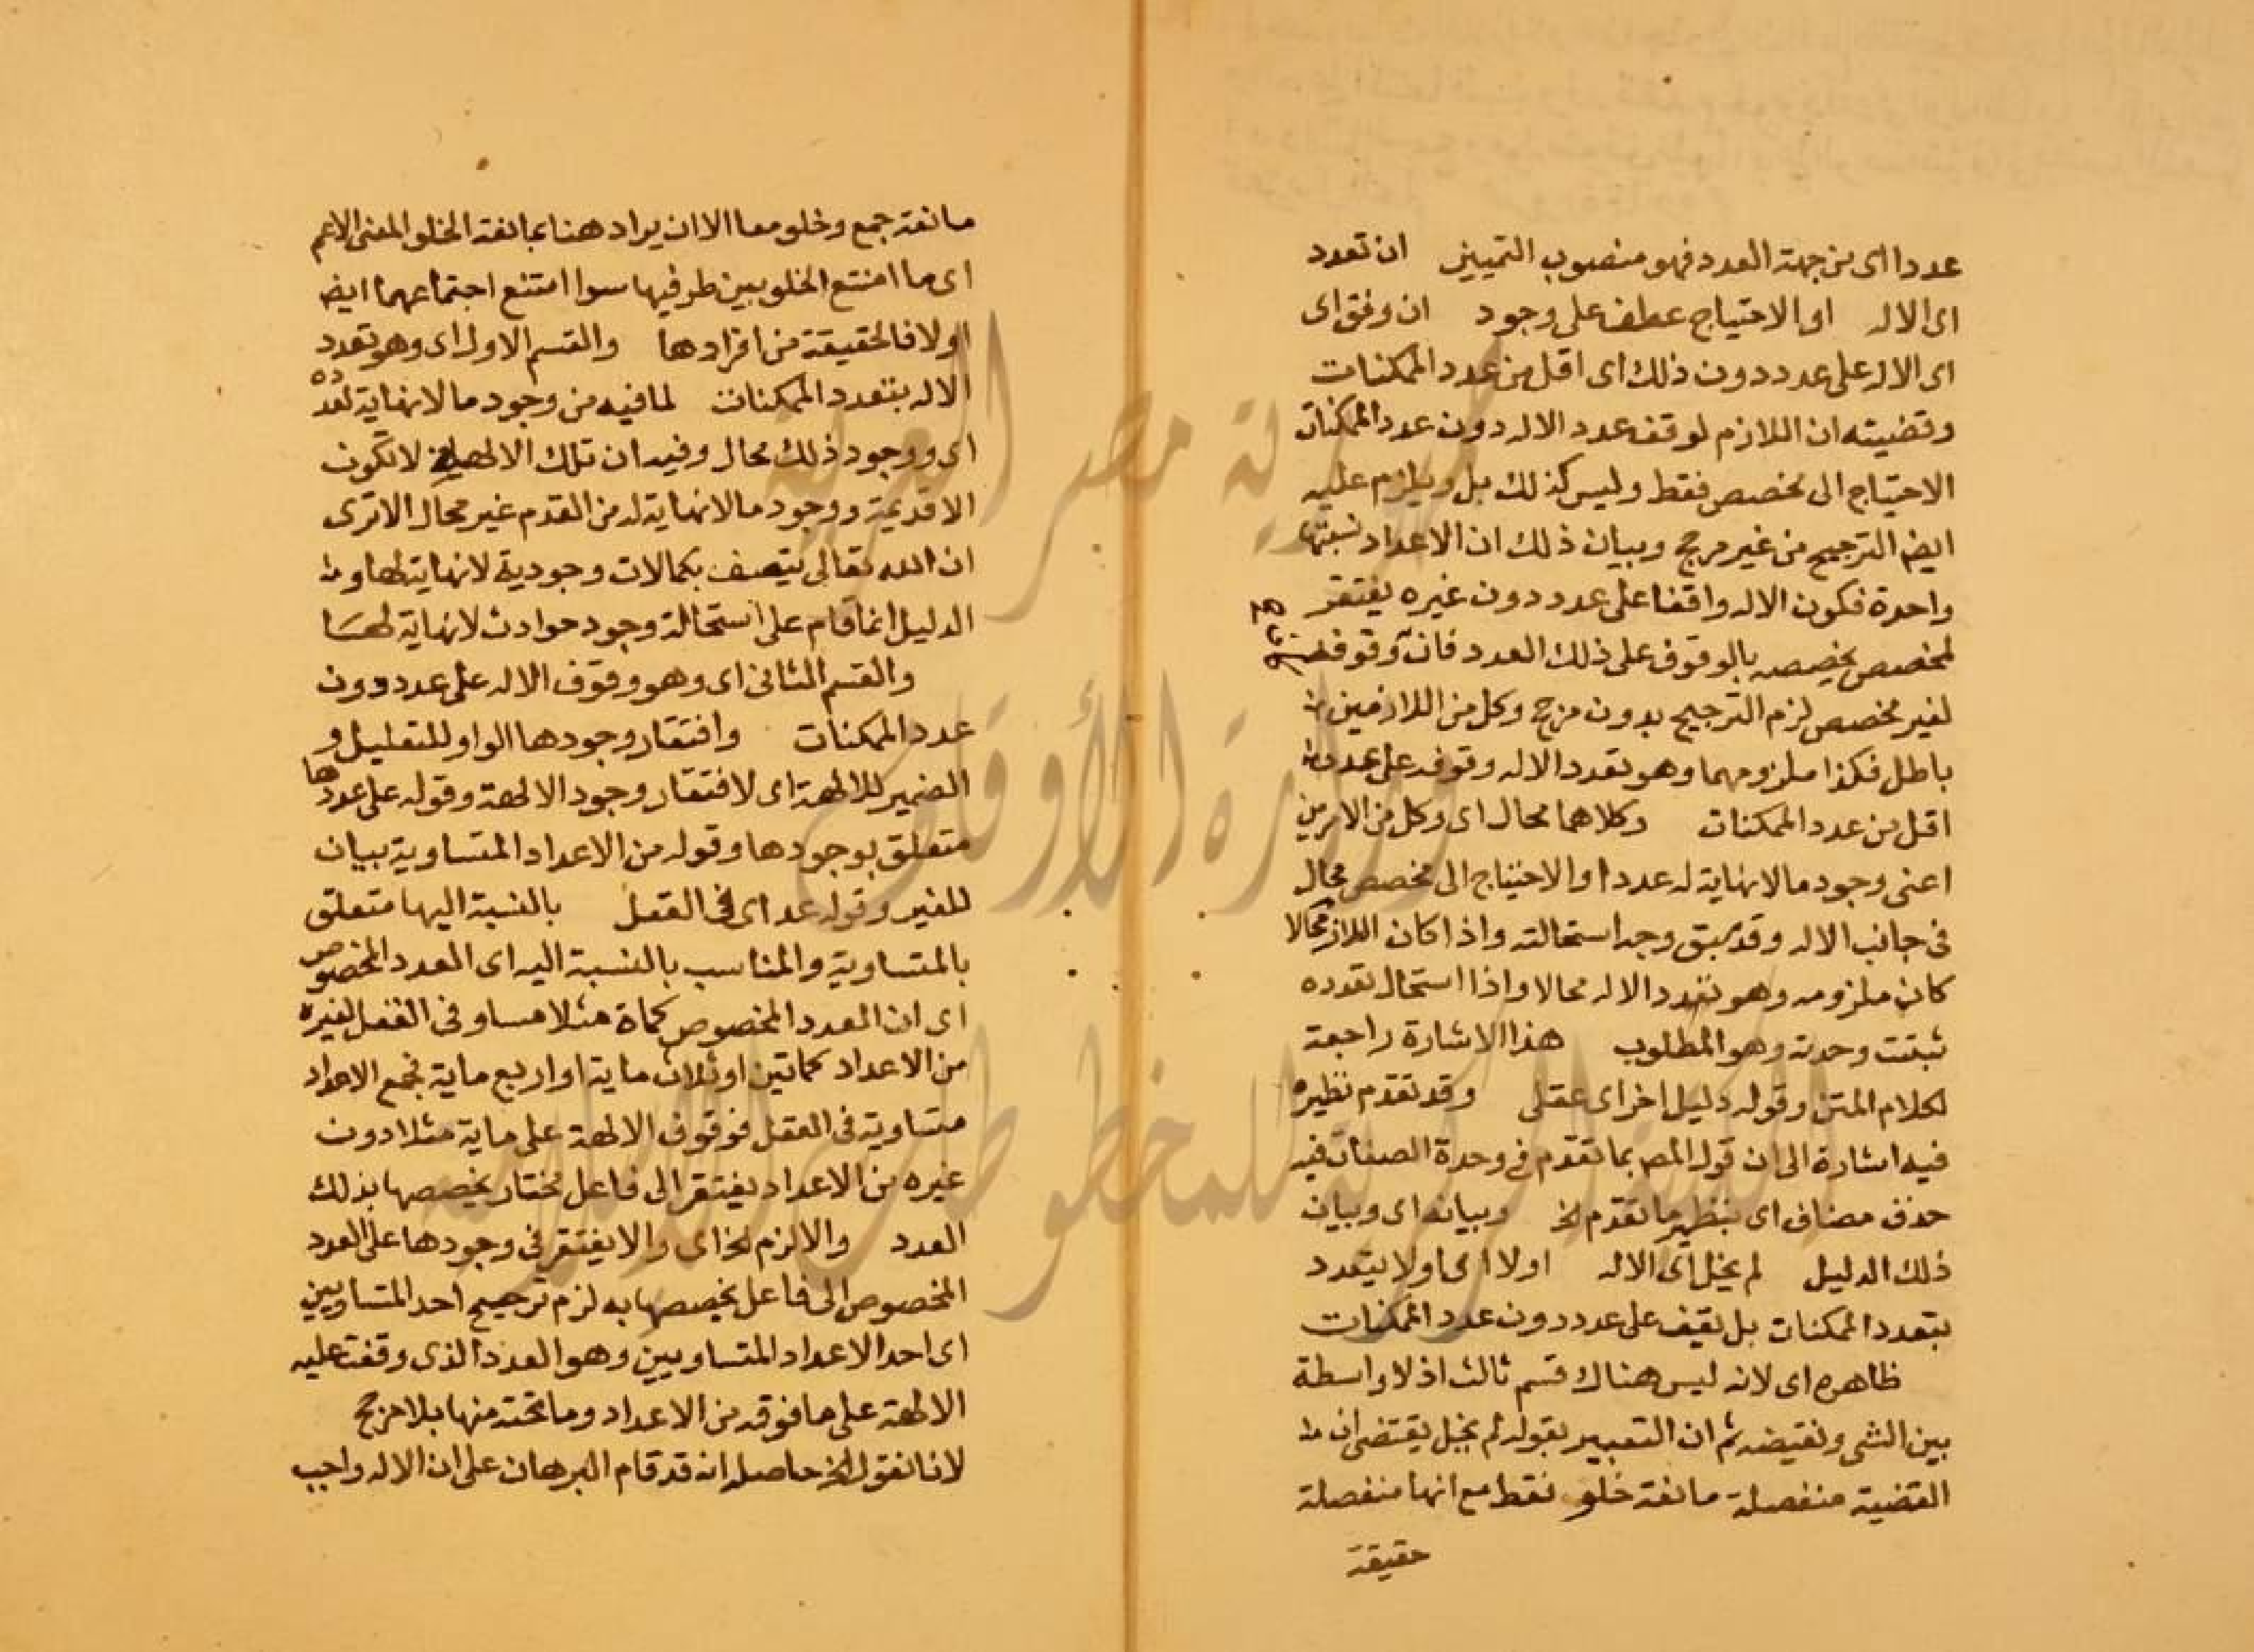 عددا اى من جهة العدد فهو منصوب التمييز ان تعدد
اى الاله او الاحتياج عطف على وجود ان وقف اى
اى الاله على عدد دون ذلك اى اقل من عدد الممكنات
وقضيته ان اللازم لوقف عدد الاله دون عدد الممكنات
الاحتياج الى مخصص فقط وليس كذلك بل ويلزم عليه
ايض الترجيح من غير مرجح وبيان ذلك ان الاعداد نسبتها
واحدة فكون الاله واقفا على عدد دون غيره يفتقر
لمخصص يخصصه بالوقوف على ذلك العدد فان وقوفه
لغير مخصص لزم الترجيح بدون مرجح وكل من اللازمين
باطل فكذا ملزومهما وهو تعدد الاله وقوفه على عدد
اقل من عدد الممكنات وكلاهما محال اى وكل من الامرين
اعنى وجود ما لا نهاية له عددا والاحتياج الى مخصص محال
فى جانب الاله وقد سبق وجه استحالته واذا كان اللازم محالا
كان ملزومه وهو تعدد الاله محالا واذا استحال تعدده
ثبتت وحدته وهو المطلوب هذا الاشارة راجعة
لكلام المتن وقوله دليل اخر اى عقلى وقد تقدم نظيره
فيه اشارة الى ان قول المص بما تقدم فى وحدة الصفات فيه
حذف مضاف اى بنظير ما تقدم الخ وبيانه اى وبيان
ذلك الدليل لم يخل اى الاله اولا اى او لا يتعدد
بتعدد الممكنات بل يقف على عدد دون عدد الممكنات
ظاهره اى لانه ليس هناك قسم ثالث اذ لا واسطة
بين الشى ونقيضه ثم ان التعبير بقوله لم يخل يقتضى ان
القضية منفصلة مانعة خلو فقط مع انها منفصلة
حقيقة
مانعة جمع وخلو معا الا ان يراد هنا بمانعة الخلو المعنى الاعم
اى ما امتنع الخلو بين طرفيها سوا امتنع اجتماعهما ايض
اولا فالحقيقة من افرادها والقسم الاول اى وهو تعدد
الاله بتعدد الممكنات لما فيه من وجود ما لا نهاية لعدده
اى ووجود ذلك محال وفيه ان تلك الالهية لا تكون
الا قديمة ووجود ما لا نهاية له من القدم غير محال الا ترى
ان الله تعالى يتصف بكمالات وجودية لا نهاية لها و
الدليل انما قام على استحالة وجود حوادث لا نهاية لها
والقسم الثانى اى وهو وقوف الاله على عدد دون
عدد الممكنات وافتقار وجودها الواو للتعليل و
الضمير للالهة اى لافتقار وجود الالهة وقوله على عددها
متعلق بوجودها وقوله من الاعداد المتساوية بيان
للغير وقوله عدا اى فى العقل بالنسبة اليها متعلق
بالمتساوية والمناسب بالنسبة اليه اى العدد المخصوص
اى ان العدد المخصوص كماة مثلا مساو فى العقل لغيره
من الاعداد كماتين او ثلاث ماية او اربع ماية فجمع الاعداد
متساوية فى العقل فوقوف الالهة على ماية مثلا دون
غيره من الاعداد يفتقر الى فاعل مختار يخصصها بذلك
العدد والا لزم الخ اى والا يفتقر فى وجودها على العدد
المخصوص الى فاعل يخصصها به لزم ترجيح احد المتساويين
اى احد الاعداد المتساويين وهو العدد الذى وقفت عليه
الالهة على ما فوقه من الاعداد وما تحته منها بلا مرجح
لانا نقول الخ حاصله انه قد قام البرهان على ان الاله واجب
جمهورية مصر العربية
وزارة الأوقاف
المكتبة المركزية للمخطوطات الإسلامية